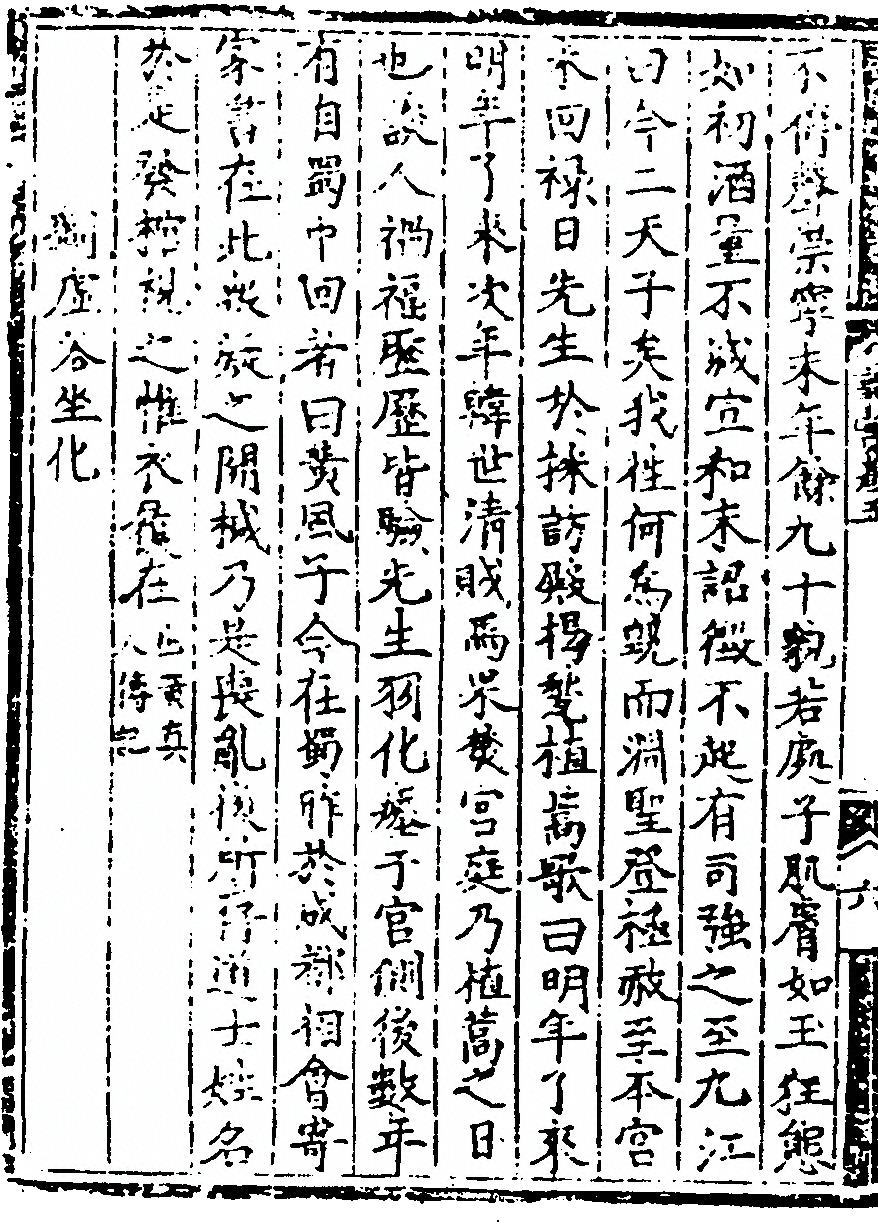 不聲崇寧末年餘九十貌若處子肌膚如玉狂態
如初酒量不減宣和末詔徵不起有司強之至九江
曰今二天子矣我往何為竟而淵聖登極赦至本宮
未回祿日先生於採訪殿揭甃植蒿歌曰明年了來
明年了來次年韓世清賊馬果焚宮庭乃植蒿之日
也談人禍福歷歷皆驗先生羽化瘞于宮側後數年
有自蜀中回者曰黃風子今在蜀昨於成都相會寄
家書在此衆啟之開緘乃是喪亂後所得道士姓名
於是發棺視之惟衣舄在出黃真人傳記
劉虛谷坐化
六